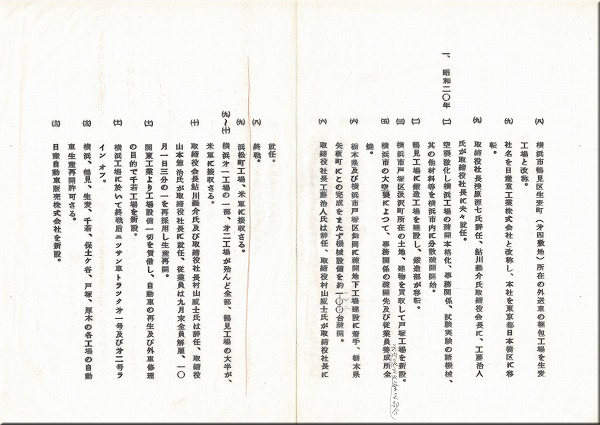 (八) 横浜市鶴見区生麦町(才四敷地)所在の外送車の梱包工場を生麦
工場と改称。
(九) 社名を日産重工業株式会社と改称し、本社を東京都日本橋区に移
転。
(九) 取締役社長浅原源七氏辞任、鮎川義介氏取締役会長に、工藤治人
氏が取締役社長に夫々就任。
一、昭和二〇年
(二) 空襲激化し横浜工場の疎開本格化、事務関係、試験実験の諸機械、
其の他材料等を横浜市内に分散疎開開始。
(二) 鶴見工場に鍛造工場を建設し、鍛造部が移転。
(三) 横浜市戸塚区汲沢町所在の土地、建物を買収して戸塚工場を新設。
(五) 横浜市の大空襲によつて、事務関係の疎開先及び従業員養成所全
焼。
(六) 栃木県及び横浜市戸塚区に疎開地下工場建設に着手、栃木県
矢板町にこの完成をまたず機械設備を約一〇〇台疎開。
(六) 取締役社長工藤治人氏は辞任、取締役村山威士氏が取締役社長に
就任。
(八) 終戦。
(九) 浜松町工場、米軍に接収さる。
(九)~(十) 横浜才一工場の一部、才二工場が殆んど全部、鶴見工場の大半が、
米軍に接収さる。
(十) 取締役会長鮎川義介氏及び取締役社長村山威士氏は辞任、取締役
山本惣治氏が取締役社長に就任、従業員は九月末全員解雇、一〇
月一日三分の一を再採用し生産再開。
(土) 関東工業より工場設備一切を賃借し、自動車の再生及び外車修理
の目的で千若工場を新設。
(土) 横浜工場に於いて終戦后ニツサン車トラツク才一号及び才二号ラ
イン オフ。
(三) 横浜、鶴見、生麦、千若、保土ケ谷、戸塚、厚木の各工場の自動
車生産再開許可さる。
(三) 日産自動車販売株式会社を新設。